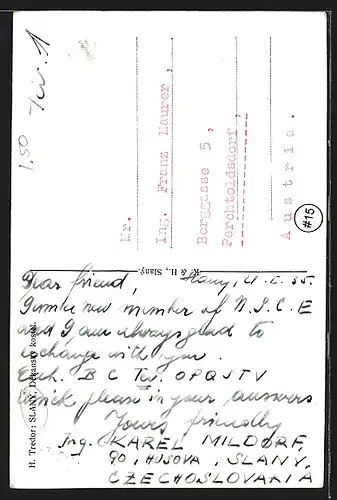 1.50 Tév. 1
Mr.
Ing. Franz Maurer,
Berggasse 5,
Perchtoldsdorf,
Austria.
#15
K & H., Slaný.
H. Tredor: SLANÝ, Děkanský kostel.
Dear friend, Slany, 35.
new member of N.S.C.E
and I am always glad to
exchange with you.
Exch. B C Tév. OPQSTV
please in your answers
Yours friendly
Ing. KAREL MILDORF,
90, HUSOVA, SLANY,
CZECHOSLOVAKIA